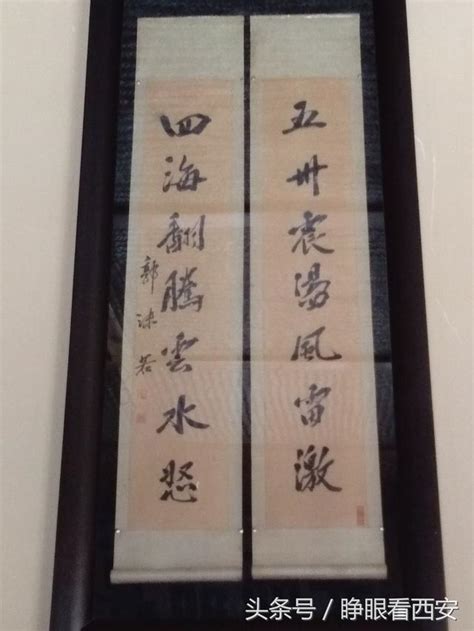 五州震盪風雷激
四海翻騰雲水怒
郭沫若
头条号 / 睁眼看西安